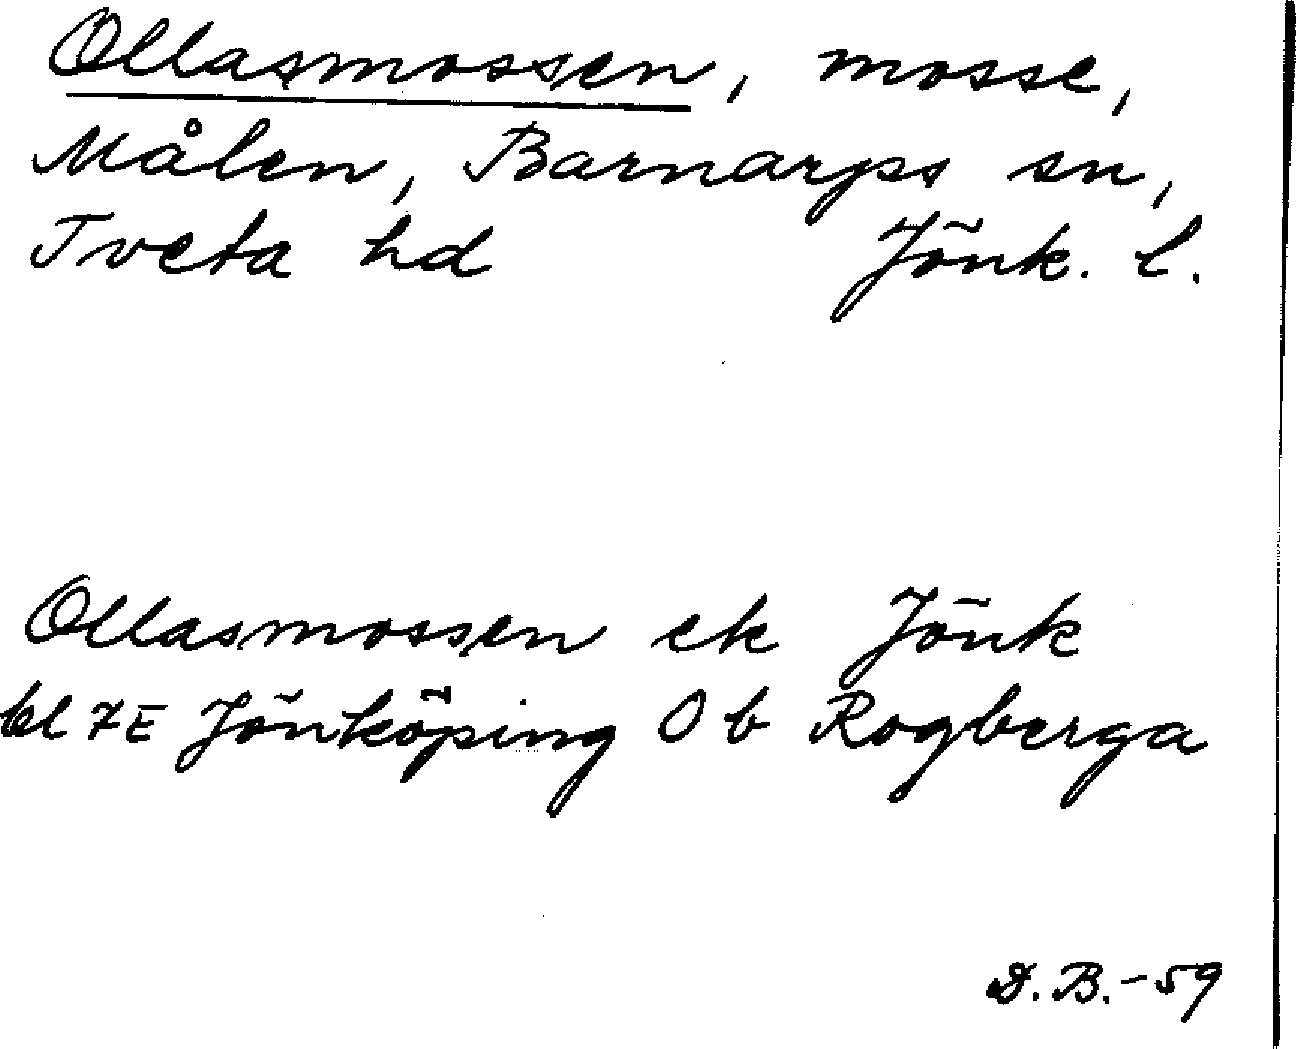 Ollasmossen, mosse,
Målen, Barnarps sn,
Tveta hd Jönk. l.
Ollasmossen ek Jönk
bl 7E Jönköping O b Rogberga
D. B. - 59